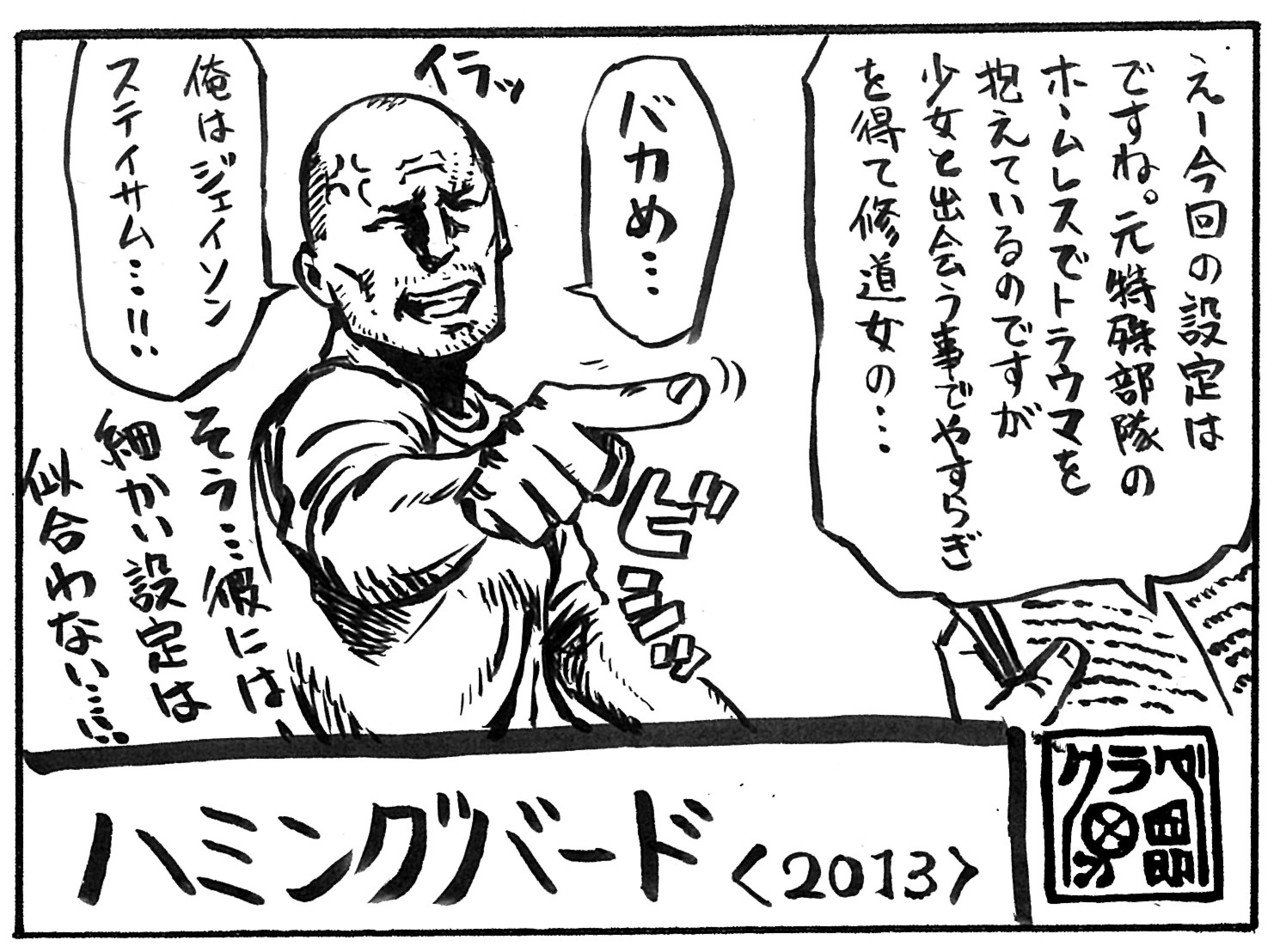 えー今回の設定は
ですね。元特殊部隊の
ホームレスでトラウマを
抱えているのですが
少女と出会う事でやすらぎ
を得て修道女の…
バカめ…
イラッ
俺はジェイソン
ステイサム…!!
ビシッ
そう…彼には、
細かい設定は
似合わない…!!
ハミングバード〈2013〉